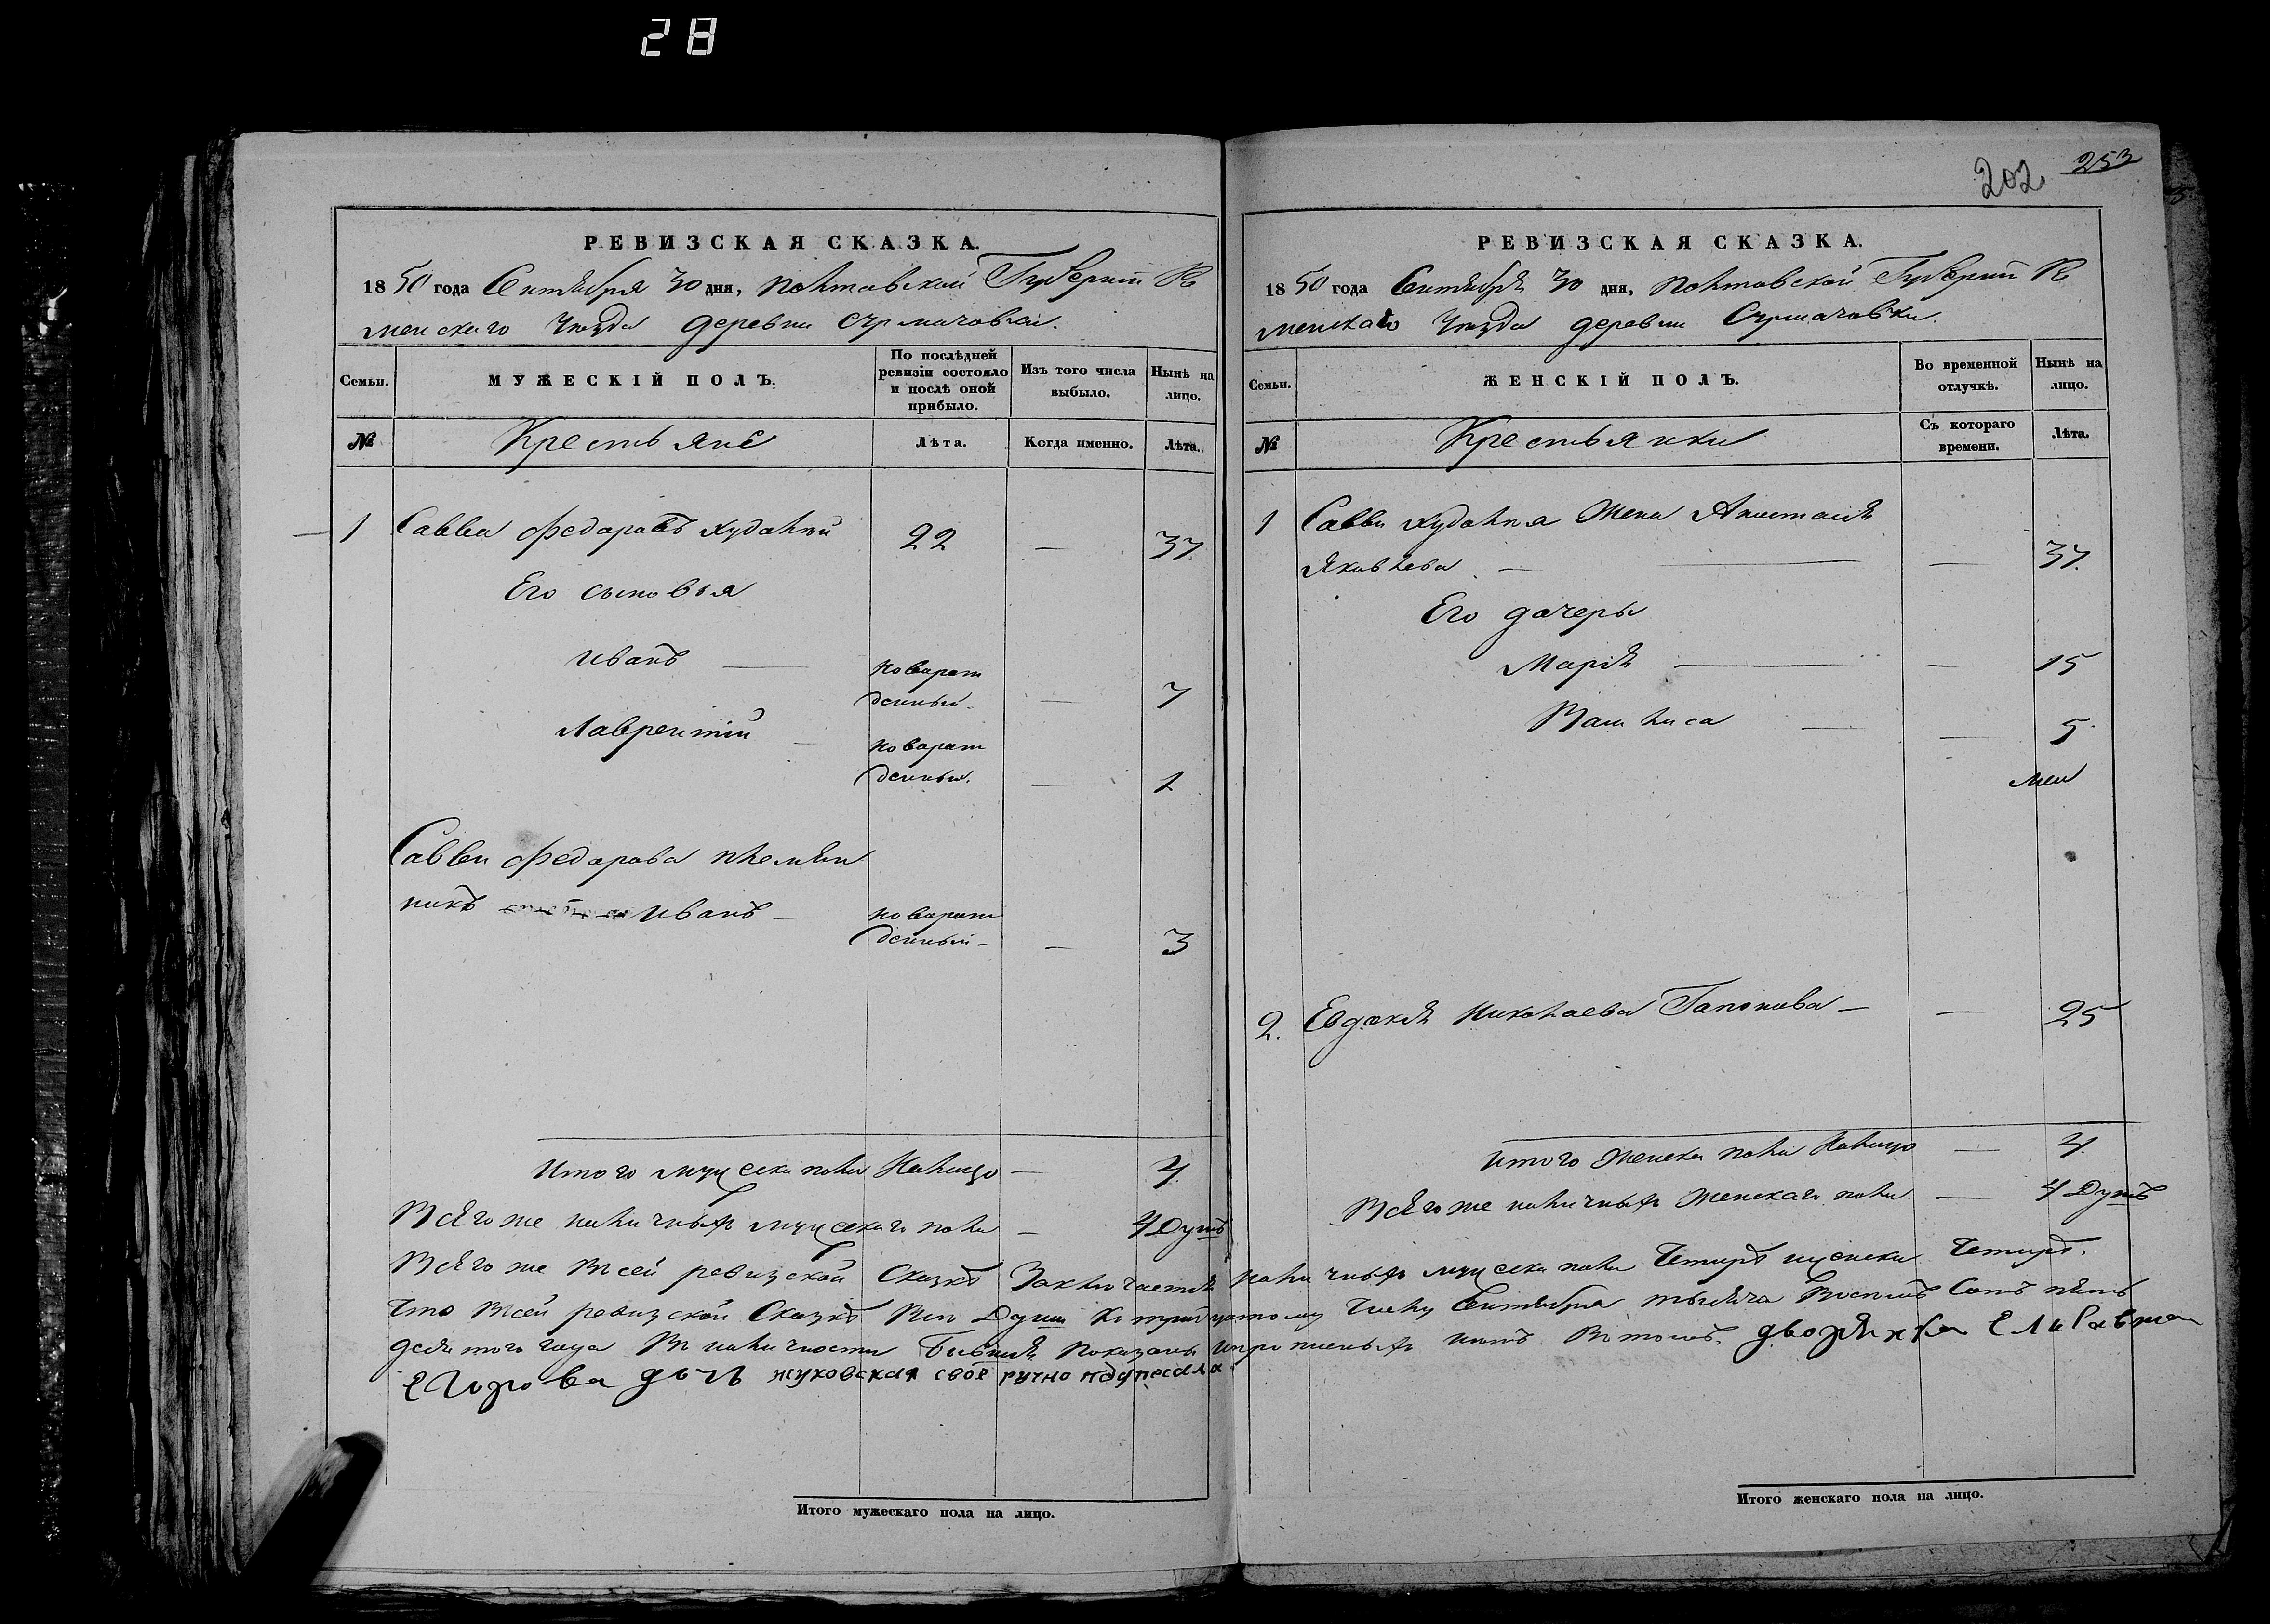 28
202 253
РЕВИЗСКАЯ СКАЗКА.
1850 года Сентября 30 дня, Полтавской Губернии Ро
менскаго Уезда деревни Сурмачовки.
Семьи. МУЖЕСКІЙ ПОЛЪ. По послѣдней ревизіи состояло и послѣ оной прибыло. Изъ того числа выбыло. Нынѣ на лицо.
№ Крестьяне Лѣта. Когда именно. Лѣта.
1 Савва Федаровъ Худолѣй 22 — 37.
Его сыновья
Иванъ — новарож
денный — 7
Лаврентій — новарож
денный. — 1
Саввы Федарова племян
никъ Иванъ — новарож
денный — — 3
Итого мужеска пола налицо — 4.
Всяго же наличныхъ мужескаго пола — 4 Душъ
РЕВИЗСКАЯ СКАЗКА.
1850 года Сентября 30 дня, Полтавской Губернии Ро
менскаго Уезда деревни Сурмачовки.
Семьи. ЖЕНСКІЙ ПОЛЪ. Во временной отлучкѣ. Нынѣ на лицо.
№ Крестьянки Съ котораго времени. Лѣта.
1 Саввы Худолѣя жена Анастасія
Яковлева — — — 37.
Его дочеры
Марія — — 15
Васи лиса — — 5.
2. Евдокія Николаева Гапонова — — 25
Итого женска пола налицо — 4.
Всяго же наличныхъ женскаго пола — 4 Душъ
Всяго же всей ревизской Сказкѣ Заключается наличныхъ мужеска пола Четырѣ иженска Четырѣ.
Что всей ревизской Сказкѣ все Души Ктридцатому Числу Сентября тысяча Восемъ Сотъ пять
десятого года Вналичности Бывшія показаны ипрописныхъ нетъ Втомъ. дворянка Елисавета
Егорова дочь жуковская своеручно падписала
Итого мужескаго пола на лицо.
Итого женскаго пола на лицо.